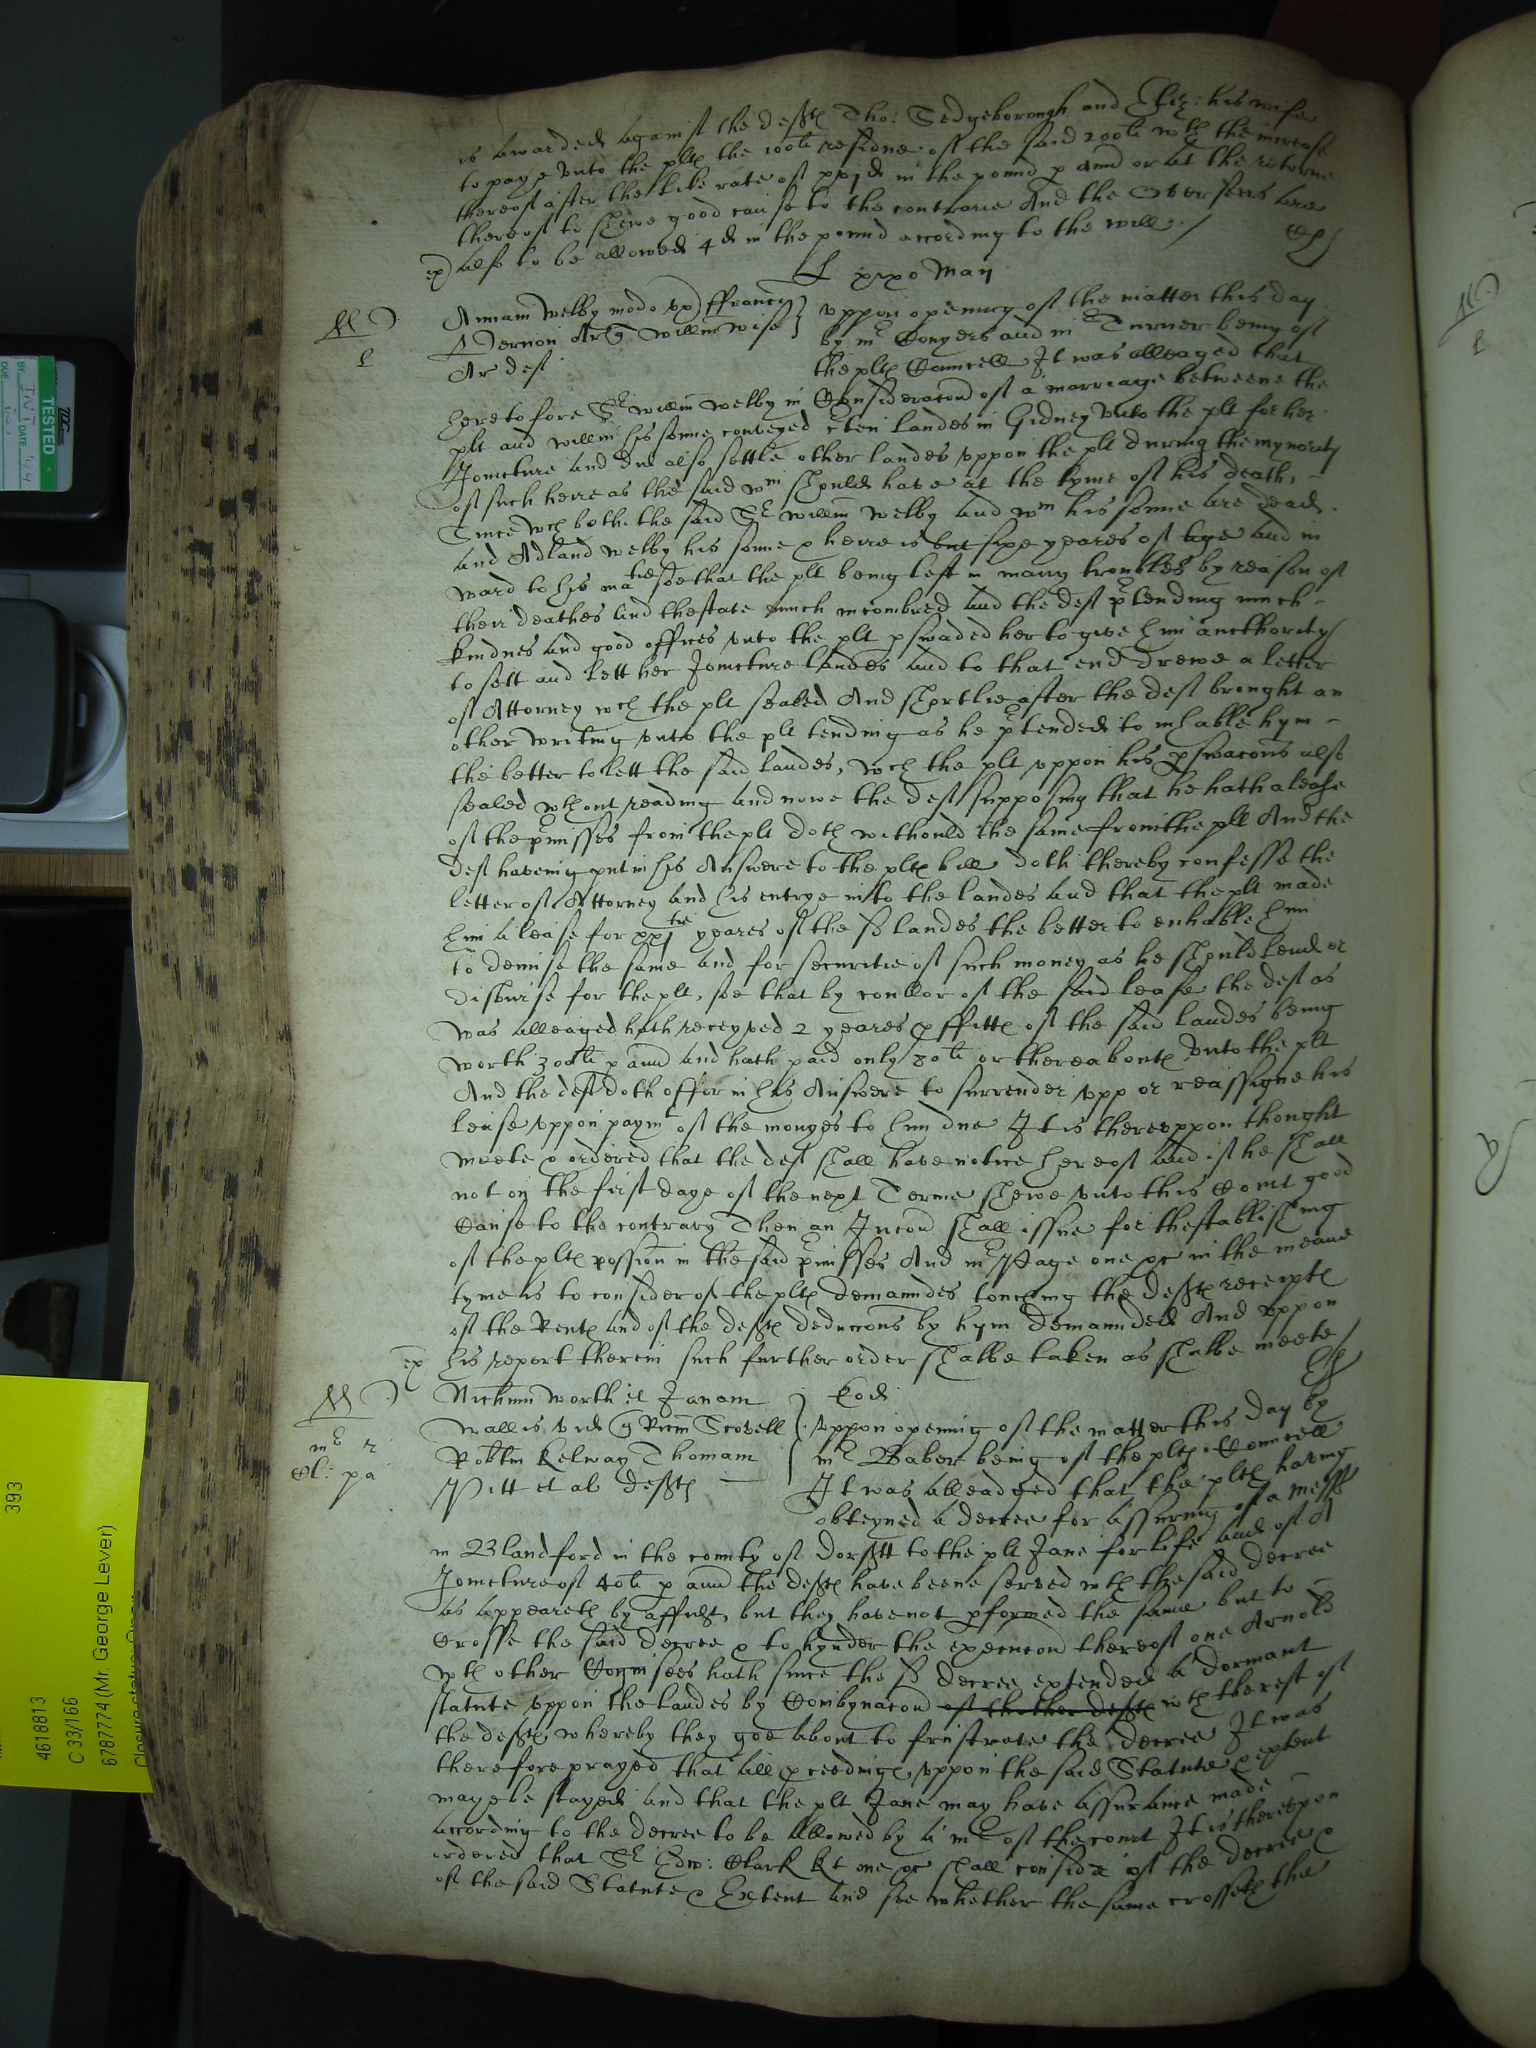 is awarded against the defts Tho: Sedgeborough and Eliz: his wife
to paye unto the plts the 100li residue of the said 200li wth the increase
thereof after the like rate of xxjd in the pound p annu or at the retorne
thereof to shewe good cause to the contrarie And the Overseers are
ex) also to be allowed 4d in the pound according to the will /
xixo May
Annam Welby modo ux) ffrancis
Vernon Ar q) Willm Wise
Ar deft
uppon openinge of the matter this day
by mr Conyers and mr Turner being of
the plts Councell It was alleaged that
heretofore Sr Willm Welby in Consideracon of a marriage betweene the
plt and Willm his sonne conveyed cten landes in Gidney unto the plt for her
Joincture and did also settle other landes uppon the plt during the mynority
of such heire as the said Wm should have at the tyme of his death,
Since wch both the said Sr Willm Welby and Wm his sonne are dead.
and Adland Welby his sonne & heire is but sixe yeares of age and in
ward to his matie soe that the plt being left in many troubles by reason of
their deathes and thestate much incombred and the deft ptending much
kindnes and good offices unto the plt pswaded her to give him aucthority
to sett and lett her Joincture landes and to that end drewe a letter
of Attorney wch the plt sealed And shortlie after the deft brought an
other writing unto the plt tending as he ptended to inhable hym
the better to lett the said landes, wch the plt uppon his pswacons also
sealed wthout reading and nowe the deft supposing that he hath a lease
of the pmisses from the plt doth withould the same from the plt And the
deft haveing put in his Answere to the plts bill doth thereby confesse the
letter of Attorney and his entrye into the landes and that the plt made
him a lease for xxjtie yeares of the sd landes the better to enhable him
to demise the same and for securitie of such money as he should lend or
disburse for the plt, soe that by coullor of the said lease the deft as
was alleaged hath receyved 2 yeares pffitts of the said landes being
worth 300li p annu and hath paid only 80li or thereabouts unto the plt
And the deft doth offer in his Answere to surrender upp or reassigne his
lease uppon paymt of the monyes to him due It is thereuppon thought
meete & ordered that the deft shall have notice hereof And if he shall
not on the first daye of the next Terme shewe unto this Court good
Cause to the contrary Then an Iniucon shall issue for thestablishing
of the plts possion in the said pmisses And mr Page one &c in the meane
tyme is to consider of the plts demaundes touching the defts receipts
of the Rents and of the defts deduccons by hym demaunded And uppon
ex his report therein such further order shalbe taken as shalbe meete /
Nichum Worth et Janam
Wallis vid q) Ricm Scovell
Robtm Kelway Thomam
Pitt et al defts
Eod
uppon opening of the matter this day by
mr Baber being of the plts Councell
It was alleadged that the plts having
obteyned a decree for assuring of a messe
in Blandford in the county of Dorstt to the plt Jane for life and of A
Joincture of 40li p annu the defts have beene served wth the said decree
as appeareth by affidt, but they have not pformed the same but to
Crosse the said decree & to hynder the execucon thereof one Arnold
wth other Cognisees hath since the sd decree extended a dormant
statute uppon the landes by Combynacon of thother defts wth the rest of
the defts whereby they goe about to frustrate the decree It was
therefore prayed that all pceedings uppon the said Statute & extent
maye be stayed and that the plt Jane may have assurance made
according to the decree to be allowed by a mr of the court It is thereupon
ordered that Sr Edw: Clark kt one &c shall consider of the decree &
of the said Statute & Extent and see whether the same crosseth the
TESTED
BY
DATE
DUE
393
4618813
C 33/166
6787774 (Mr. George Lever)